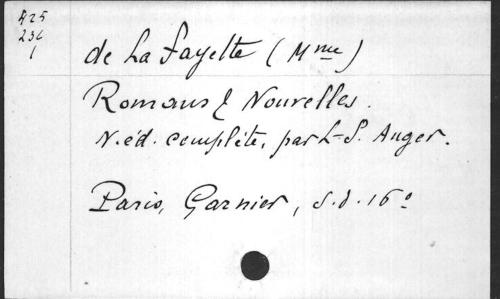 425
236
1
de La Fayette (Mme)
Romans & Nouvelles.
N. éd. complète, par L-S. Auger.
Paris, Garnier, s.d. 16º